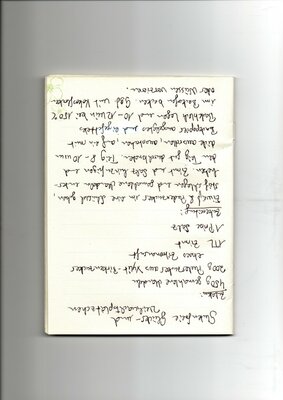 Glutenfreie Glücks- und
Weihnachtsplätzchen
Zutaten:
450g gemahlene Mandeln
200g Puderzucker aus Xylit-Birkenzucker
etwas Zitronensaft
1TL Zimt
1 Prise Salz
Zubereitung:
Eiweiß & Puderzucker in eine Schüssel geben,
steif schlagen und gemahlene Mandeln unter-
heben. Zimt und Salz hinzufügen und
den Teig gut durchkneten. Teig 8-10 mm
dick ausrollen, ausstechen, auf ein mit
Backpapier ausgelegtes und eingefettetes
Backblech legen und 10-12 min bei 150°C
im Backofen backen. Ggf. mit Kokosflocken
oder Nüssen verzieren.